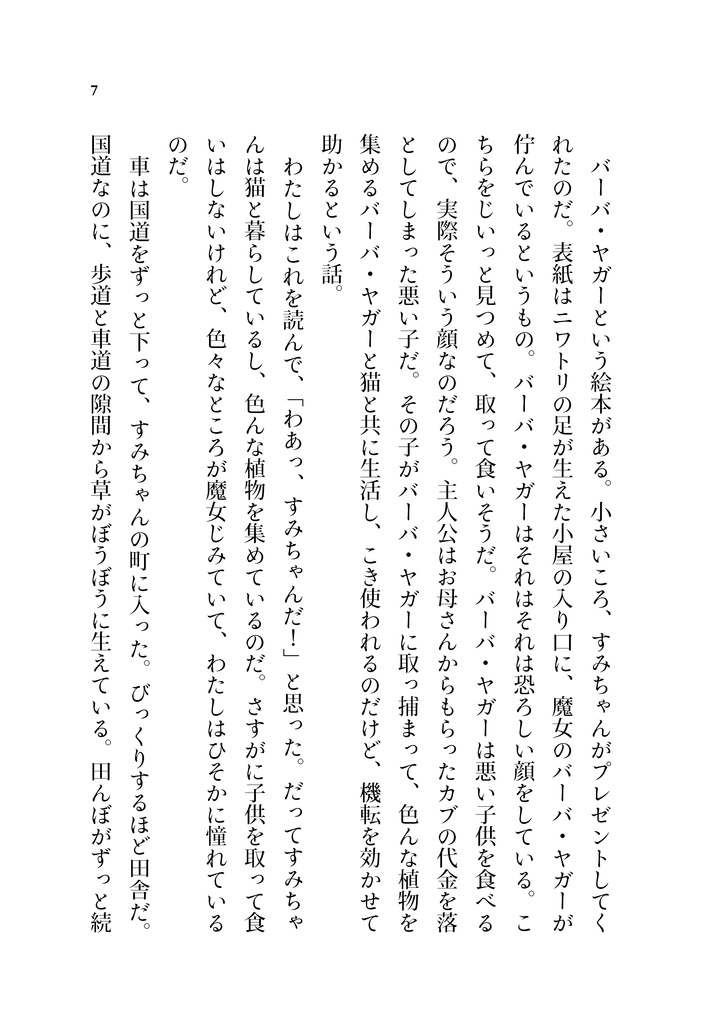 7
バーバ・ヤガーという絵本がある。小さいころ、すみちゃんがプレゼントしてく
れたのだ。表紙はニワトリの足が生えた小屋の入り口に、魔女のバーバ・ヤガーが
佇んでいるというもの。バーバ・ヤガーはそれはそれは恐ろしい顔をしている。こ
ちらをじいっと見つめて、取って食いそうだ。バーバ・ヤガーは悪い子供を食べる
ので、実際そういう顔なのだろう。主人公はお母さんからもらったカブの代金を落
としてしまった悪い子だ。その子がバーバ・ヤガーに取っ捕まって、色んな植物を
集めるバーバ・ヤガーと猫と共に生活し、こき使われるのだけど、機転を効かせて
助かるという話。
わたしはこれを読んで、「わあっ、すみちゃんだ！」と思った。だってすみちゃ
んは猫と暮らしているし、色んな植物を集めているのだ。さすがに子供を取って食
いはしないけれど、色々なところが魔女じみていて、わたしはひそかに憧れている
のだ。
車は国道をずっと下って、すみちゃんの町に入った。びっくりするほど田舎だ。
国道なのに、歩道と車道の隙間から草がぼうぼうに生えている。田んぼがずっと続